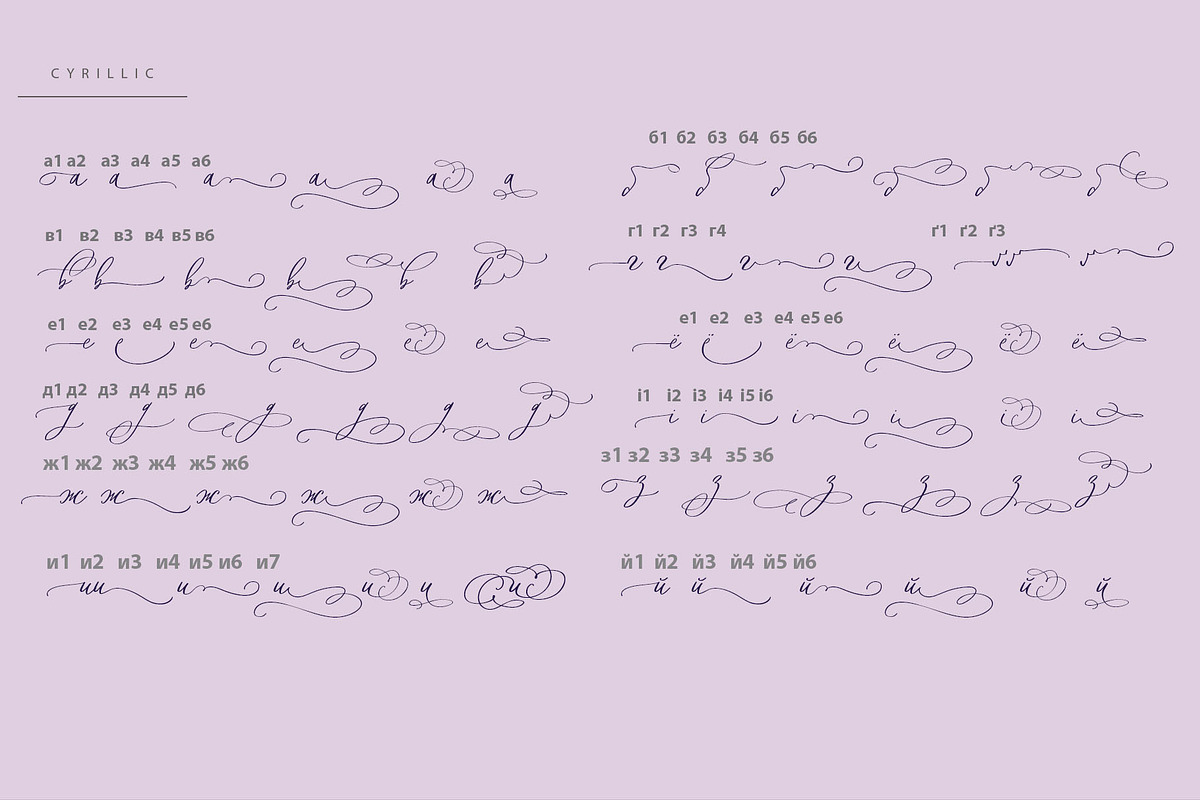 CYRILLIC
а1 а2 а3 а4 а5 а6
а а а а а а
б1 б2 б3 б4 б5 б6
б б б б б б
в1 в2 в3 в4 в5 в6
в в в в в в
г1 г2 г3 г4
г г г г
ґ1 ґ2 ґ3
ґ ґ ґ
е1 е2 е3 е4 е5 е6
е е е е е е
е1 е2 е3 е4 е5 е6
ё ё ё ё ё ё
д1 д2 д3 д4 д5 д6
д д д д д д
і1 і2 і3 і4 і5 і6
і і і і і і
ж1 ж2 ж3 ж4 ж5 ж6
ж ж ж ж ж ж
з1 з2 з3 з4 з5 з6
з з з з з з
и1 и2 и3 и4 и5 и6 и7
и и и и и и и
й1 й2 й3 й4 й5 й6
й й й й й й